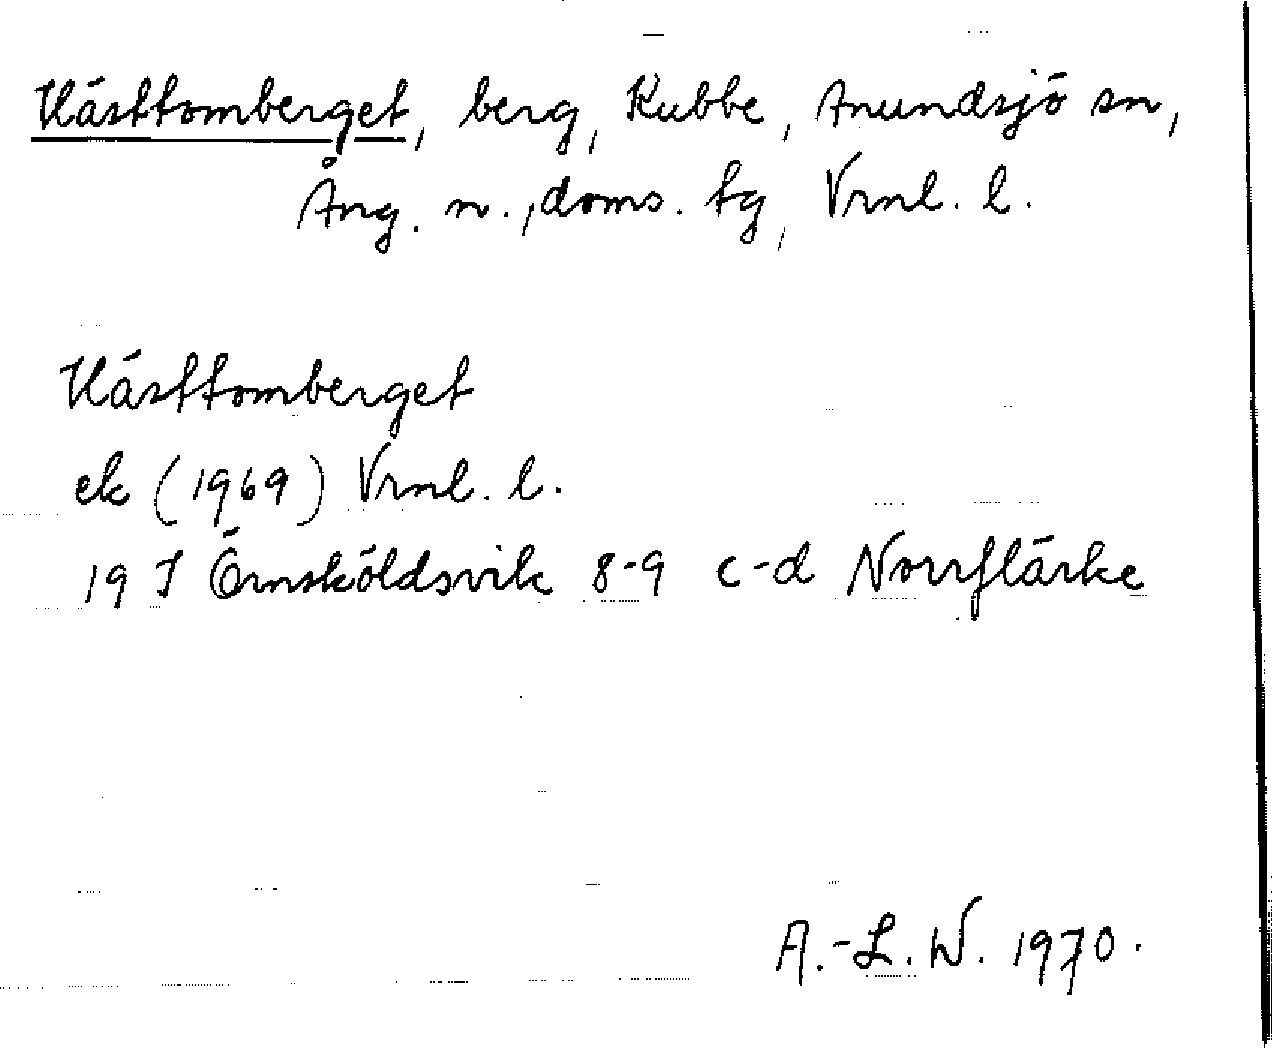 Hästtomberget, berg, Kubbe, Anundsjö sn,
Ång. n., doms. tg, Vrnl. l.
Hästtomberget
ek (1969) Vrnl. l.
19 I Örnsköldsvik 8-9 c-d Norrflärke
A.-L. W. 1970.